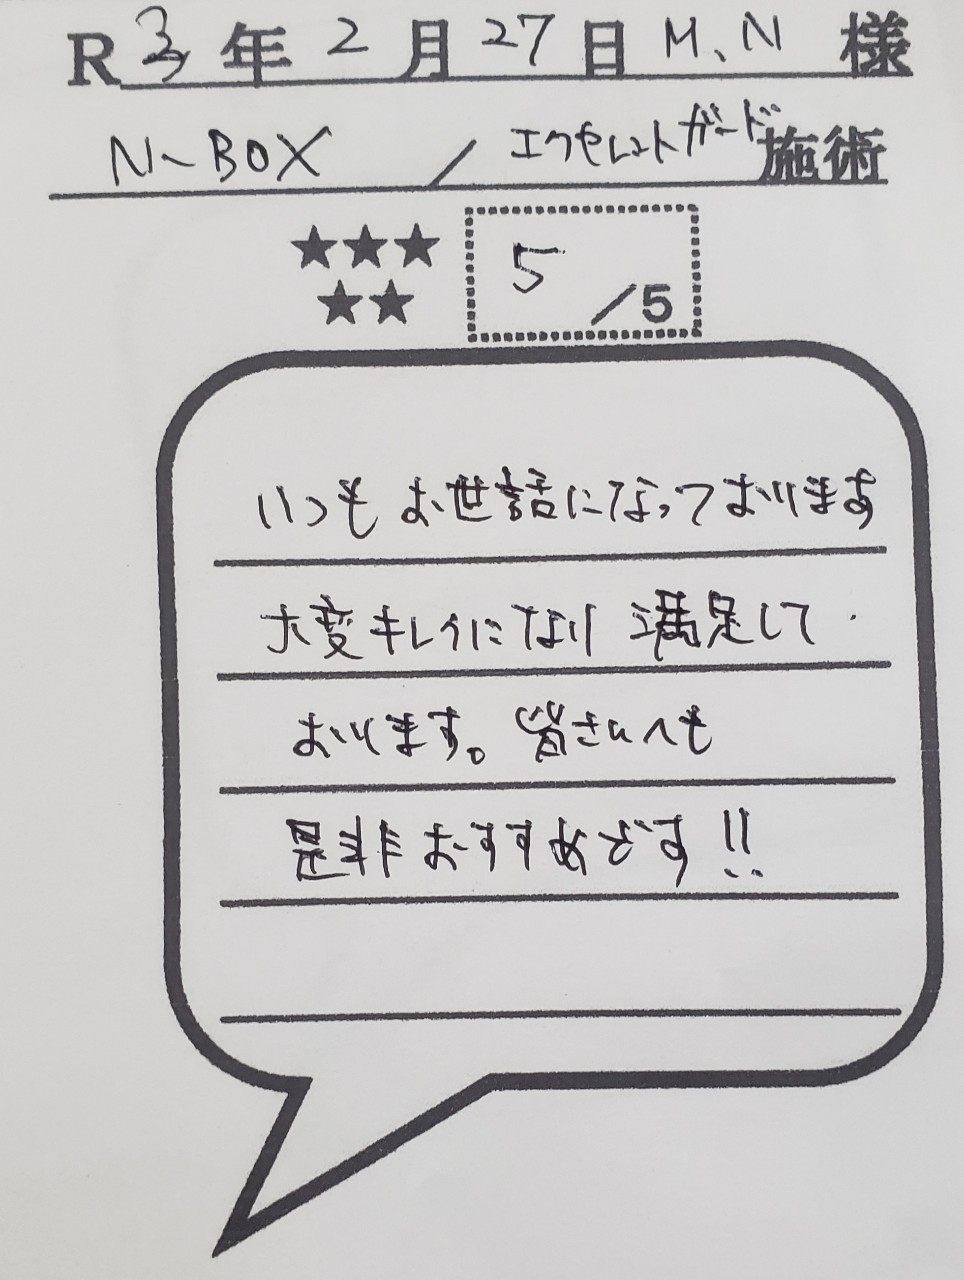 R3年2月27日 M、N 様
N-BOX / エクセレントガード 施術
★★★
★★
5/5
いつもお世話になっております
大変キレイになり満足して
おります。皆さんへも
是非おすすめです!!